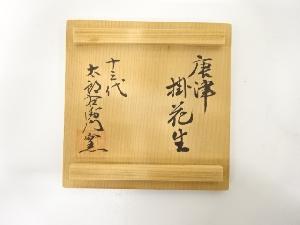 唐津
掛花生
十三代
太郎右衛門窯